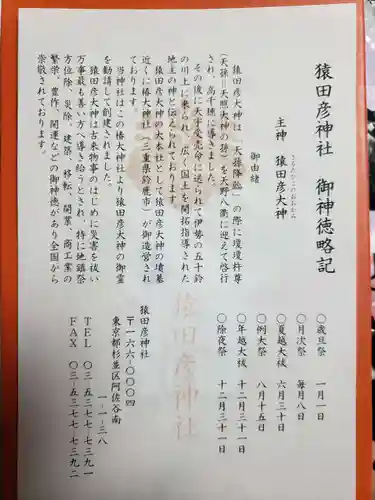 猿田彦神社 御神徳略記
さるたひこのおおかみ
主神 猿田彦大神
御由緒
猿田彦大神は「天孫降臨」の際に瓊瓊杵尊
(天孫=天照大神の孫)を天野八衢に迎えて啓行
され、高千穂に導きました。
その後に天宇受売命に送られて伊勢の五十鈴
の川上に来られ、広く国土を開拓指導された
地主の神と伝えられております。
猿田彦大神の大本社として猿田彦大神の墳墓
近くに椿大神社(三重県鈴鹿市)が御造営され
ております。
当神社はこの椿大神社より猿田彦大神の御霊
を勧請して創建されました。
猿田彦大神は古来物事のはじめに災害を祓い
万事最も善い方へ導き給うとされ、特に地鎮祭
方位除、災除、建築、移転、開業、商工業の
繁栄、豊作、開運などの御神徳があり全国から
崇敬されております。
○歳旦祭 一月一日
○月次祭 毎月八日
○夏越大祓 六月三十日
○例大祭 八月十五日
○年越大祓 十二月三十一日
○除夜祭 十二月三十一日
猿田彦神社
猿田彦神社
〒一六六-〇〇〇四
東京都杉並区阿佐谷南
一-一-三八
TEL 〇三-五三七七-七三九一
FAX 〇三-五三七七-七三九二